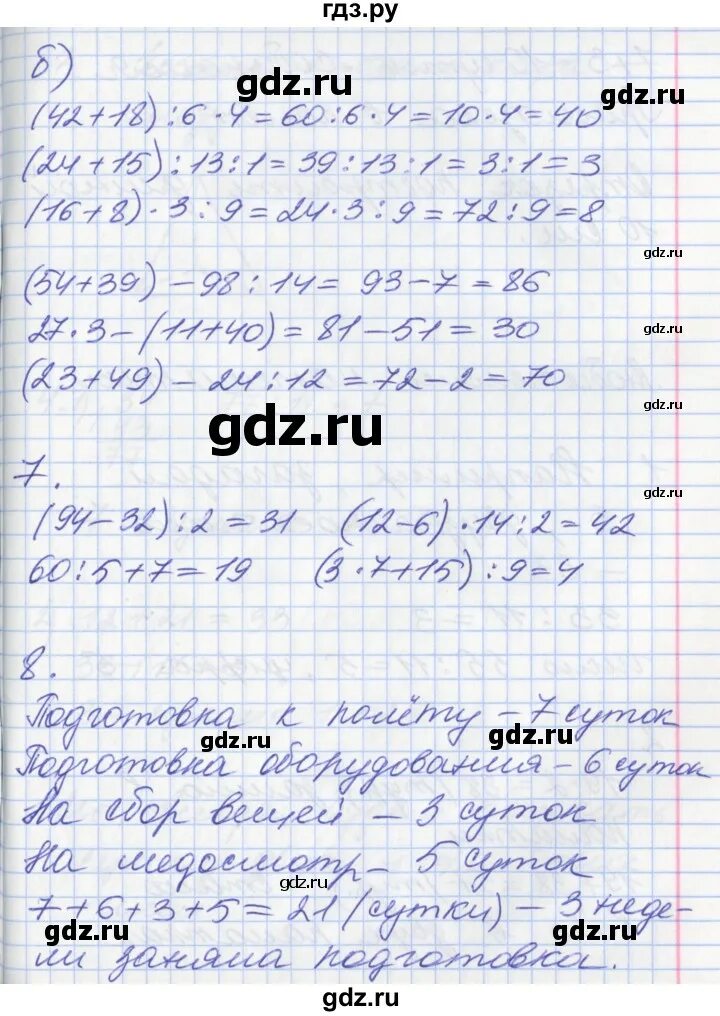 гдз.ру
б)
gdz.ru
gdz.ru
(42+18):6·4=60:6·4=10·4=40
(24+15):13:1=39:13:1=3:1=3
(16+8)·3:9=24·3:9=72:9=8
gdz.ru
(54+39)-98:14=93-7=86
27·3-(11+40)=81-51=30
gdz.ru
(23+49)-24:12=72-2=70
gdz.ru
gdz.ru
7.
gdz.ru
(94-32):2=31 (12-6)·14:2=42
60:5+7=19 (3·7+15):9=4
8.
Подготовка к полёту - 7 суток
gdz.ru
gdz.ru
Подготовка оборудования - 6 суток
На сбор вещей - 3 суток
На медосмотр - 5 суток
gdz.ru
7+6+3+5=21 (сутки) - 3 неде-
gdz.ru
gdz.ru
ли заняла подготовка.
gdz.ru